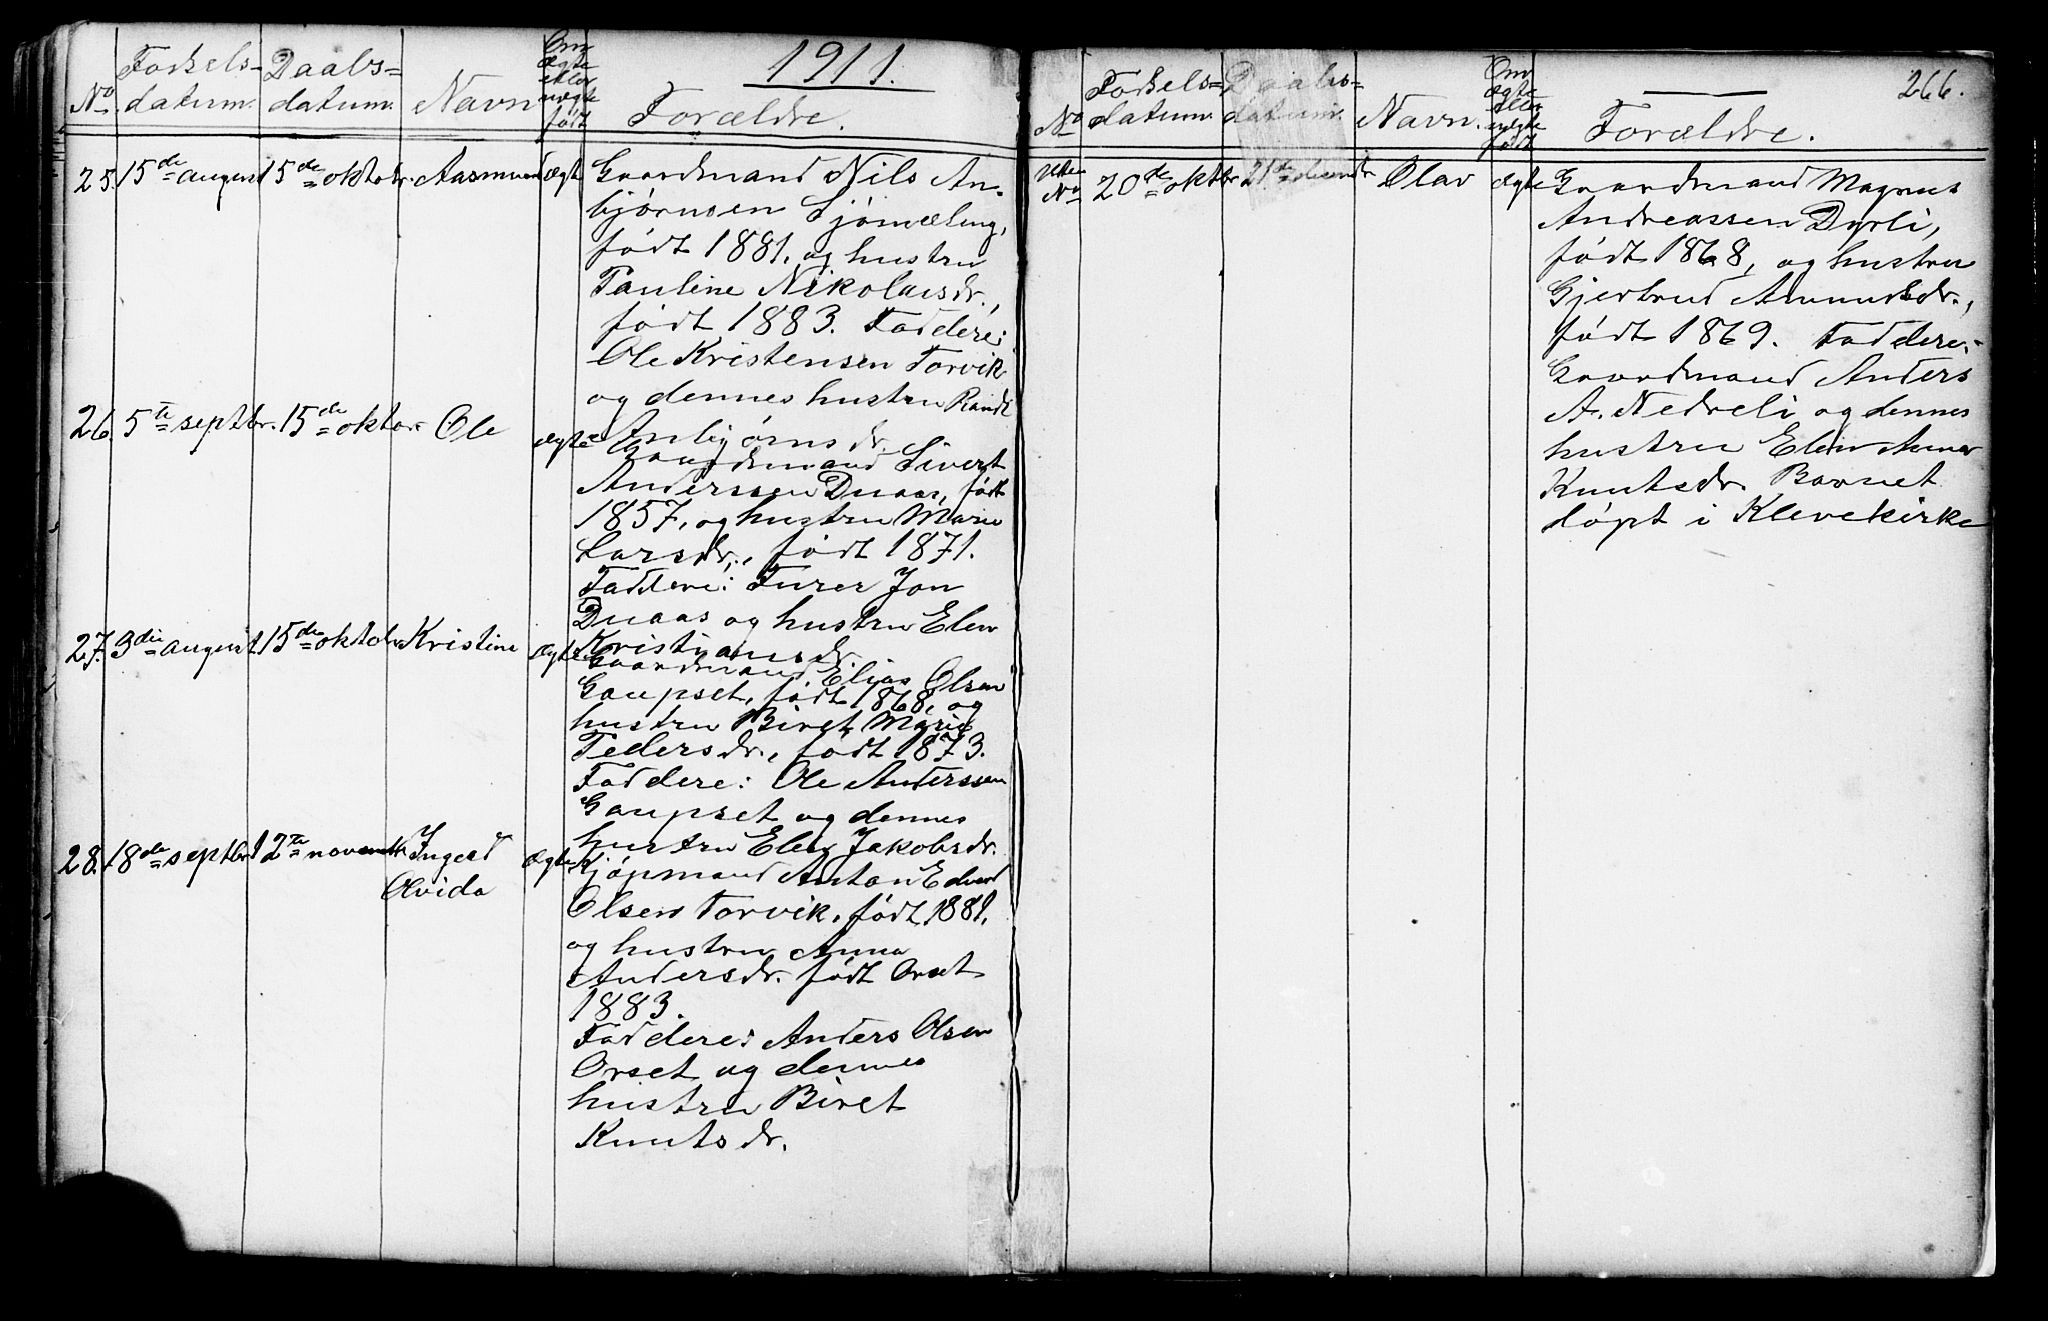 1911.
No
Fødsels-
datum.
Daabs=
datum.
Navn
Om
ægte
eller
uægte
født
Forældre.
25. 15de august 15de oktobr. Aasmund ægte
Gaardmand Nils An-
bjørnsen Sjømæling,
født 1881. og hustru
Pauline Nikolaisdr.,
født 1883. Faddere:
Ole Kristensen Torvik
og dennes hustru Randi
Anbjørnsdr.
26. 5te septbr. 15de oktobr. Ole ægte
Gaardmand Sivert
Anderssen Duaas, født
1857, og hustru Marie
Larsdr., født 1871.
Faddere: Furer Jon
Duaas og hustru Elen
Kristiansdr.
27. 3die august 15de oktobr. Kristine ægte
Gaardmand Elias Olsen
Gaupset, født 1868, og
hustru Biret Marie
Pedersdr., født 1873.
Faddere: Ole Anderssen
Gaupset og dennes
hustru Elen Jakobsdr.
28. 18de septbr 12te novembr Ingerd ægte
Olvida
Kjøpmand Anton Edvard
Olsen Torvik, født 1881.
og hustru Anna
Andersdr. født Orset
1883.
Faddere: Anders Olsen
Orset og dennes
hustru Biret
Knutsdr.
266.
No
Fødsels=
datum.
Daabs=
datum.
Navn.
Om
ægte
eller
uægte
født
Forældre.
Uten
No 20de oktbr 21de decembr Olav ægte
Gaardmand Magnus
Andreassen Dyrli,
født 1868, og hustru
Gjertrud Amundsdr.,
født 1869. Faddere:
Gaardmand Anders
A. Nedreli og dennes
hustru Elen Anna
Knutsdr. Barnet
døpt i Klevekirke